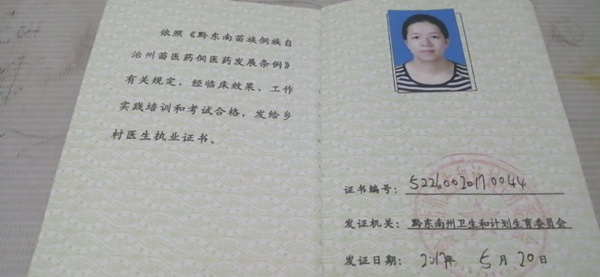 依照《黔东南苗族侗族自
治州苗医药侗医药发展条例》
有关规定，经临床效果、工作
实践培训和考试合格，发给乡
村医生执业证书。
证书编号：522600201710044
发证机关：黔东南州卫生和计划生育委员会
发证日期：2017年 5月20日